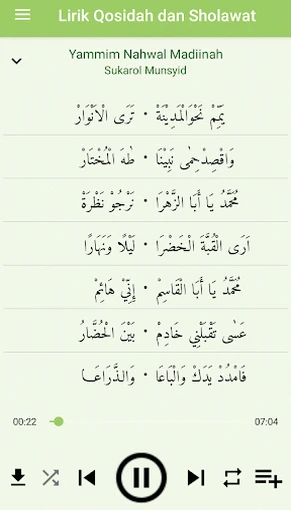 Lirik Qosidah dan Sholawat
Yammim Nahwal Madiinah
Sukarol Munsyid
يَمِّمْ نَحْوَالْمَدِيْنَةْ • تَرَى الْاَنْوَارْ
وَاقْصِدْحِمٰى نَبِيْنَا • طٰهَ الْمُخْتَارْ
مُحَمَّدُ يَا أَبَا الزَّهْرَا • نَرْجُوْ نَظْرَةْ
اَرَى الْقُبَّةَ الْخَضْرَا • لَيْلًا وَنَهَارًا
مُحَمَّدُ يَا أَبَا الْقَاسِمْ • إِنِّيْ هَائِمْ
عَسٰى تَقْبَلْنِي خَادِمْ • بَيْنَ الْحُضَّارُ
فَامْدُدْ يَدَكْ وَالْبَاعَا • وَالذَّرَاعَـا
00:22 07:04